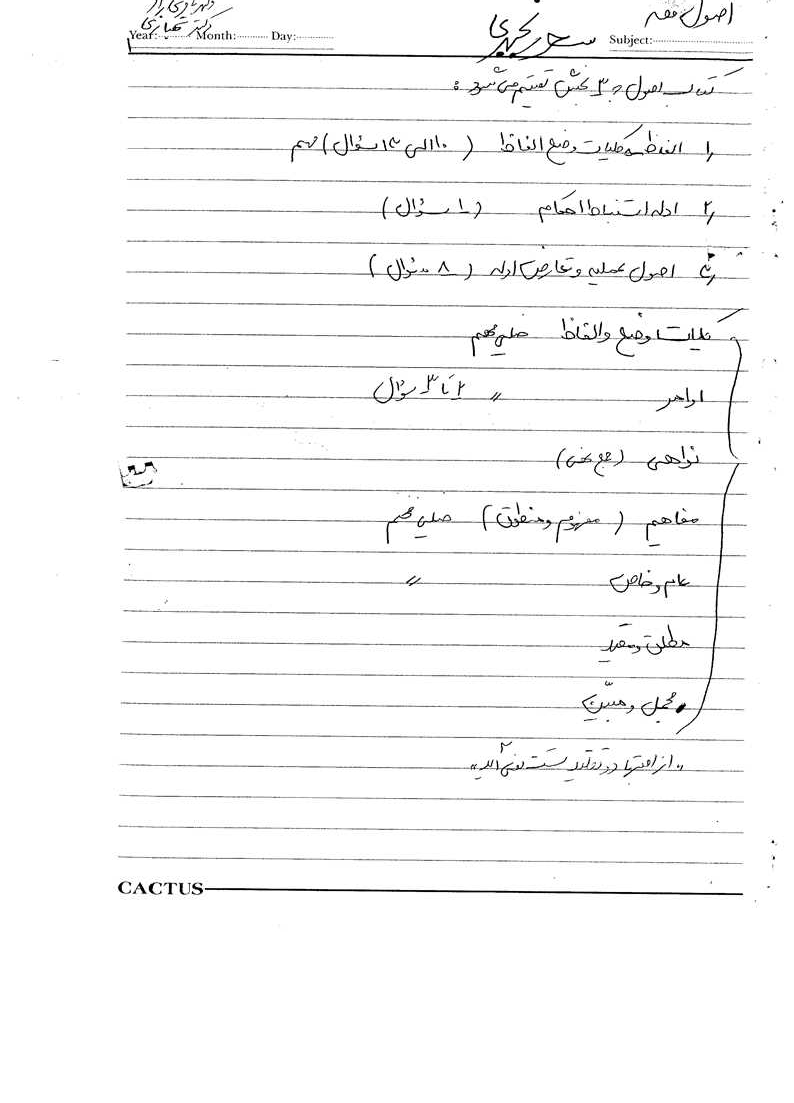 اصول فقه
Year: Month: Day: Subject:
کتاب اصول به ۳ بخش تقسیم می شود:
۱ الفاظ کلیات وضع الفاظ (۱۰ الی ۱۳ سؤال) مهم
۲ ادله استنباط احکام (۱۰ سؤال)
۳ اصول عملیه و تعارض ادله (۸ سؤال)
کلیات وضع والفاظ خیلی مهم
اوامر " ۲ تا ۳ سؤال
نواهی (جمع نهی)
مفاهیم (مفهوم و منطوق) خیلی مهم
عام و خاص "
مطلق و مقید
مجمل و مبیّن
CACTUS